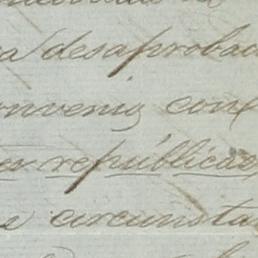 a desaprobad
convenio con
republicas
s circunsta